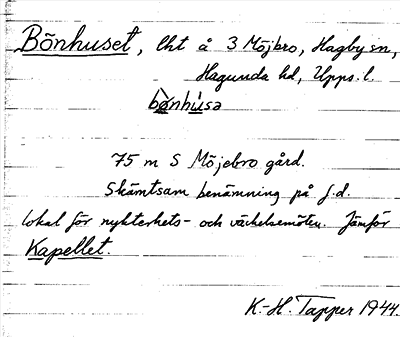 Bönhuset, lht å 3 Möjbro, Hagby sn,
Hagunda hd, Upps. l.
bönhusə
75 m S Möjebro gård.
Skämtsam benämning på f.d.
lokal för nykterhets- och väckelsemöten. Jämför
Kapellet.
K.-H. Tapper 1944.